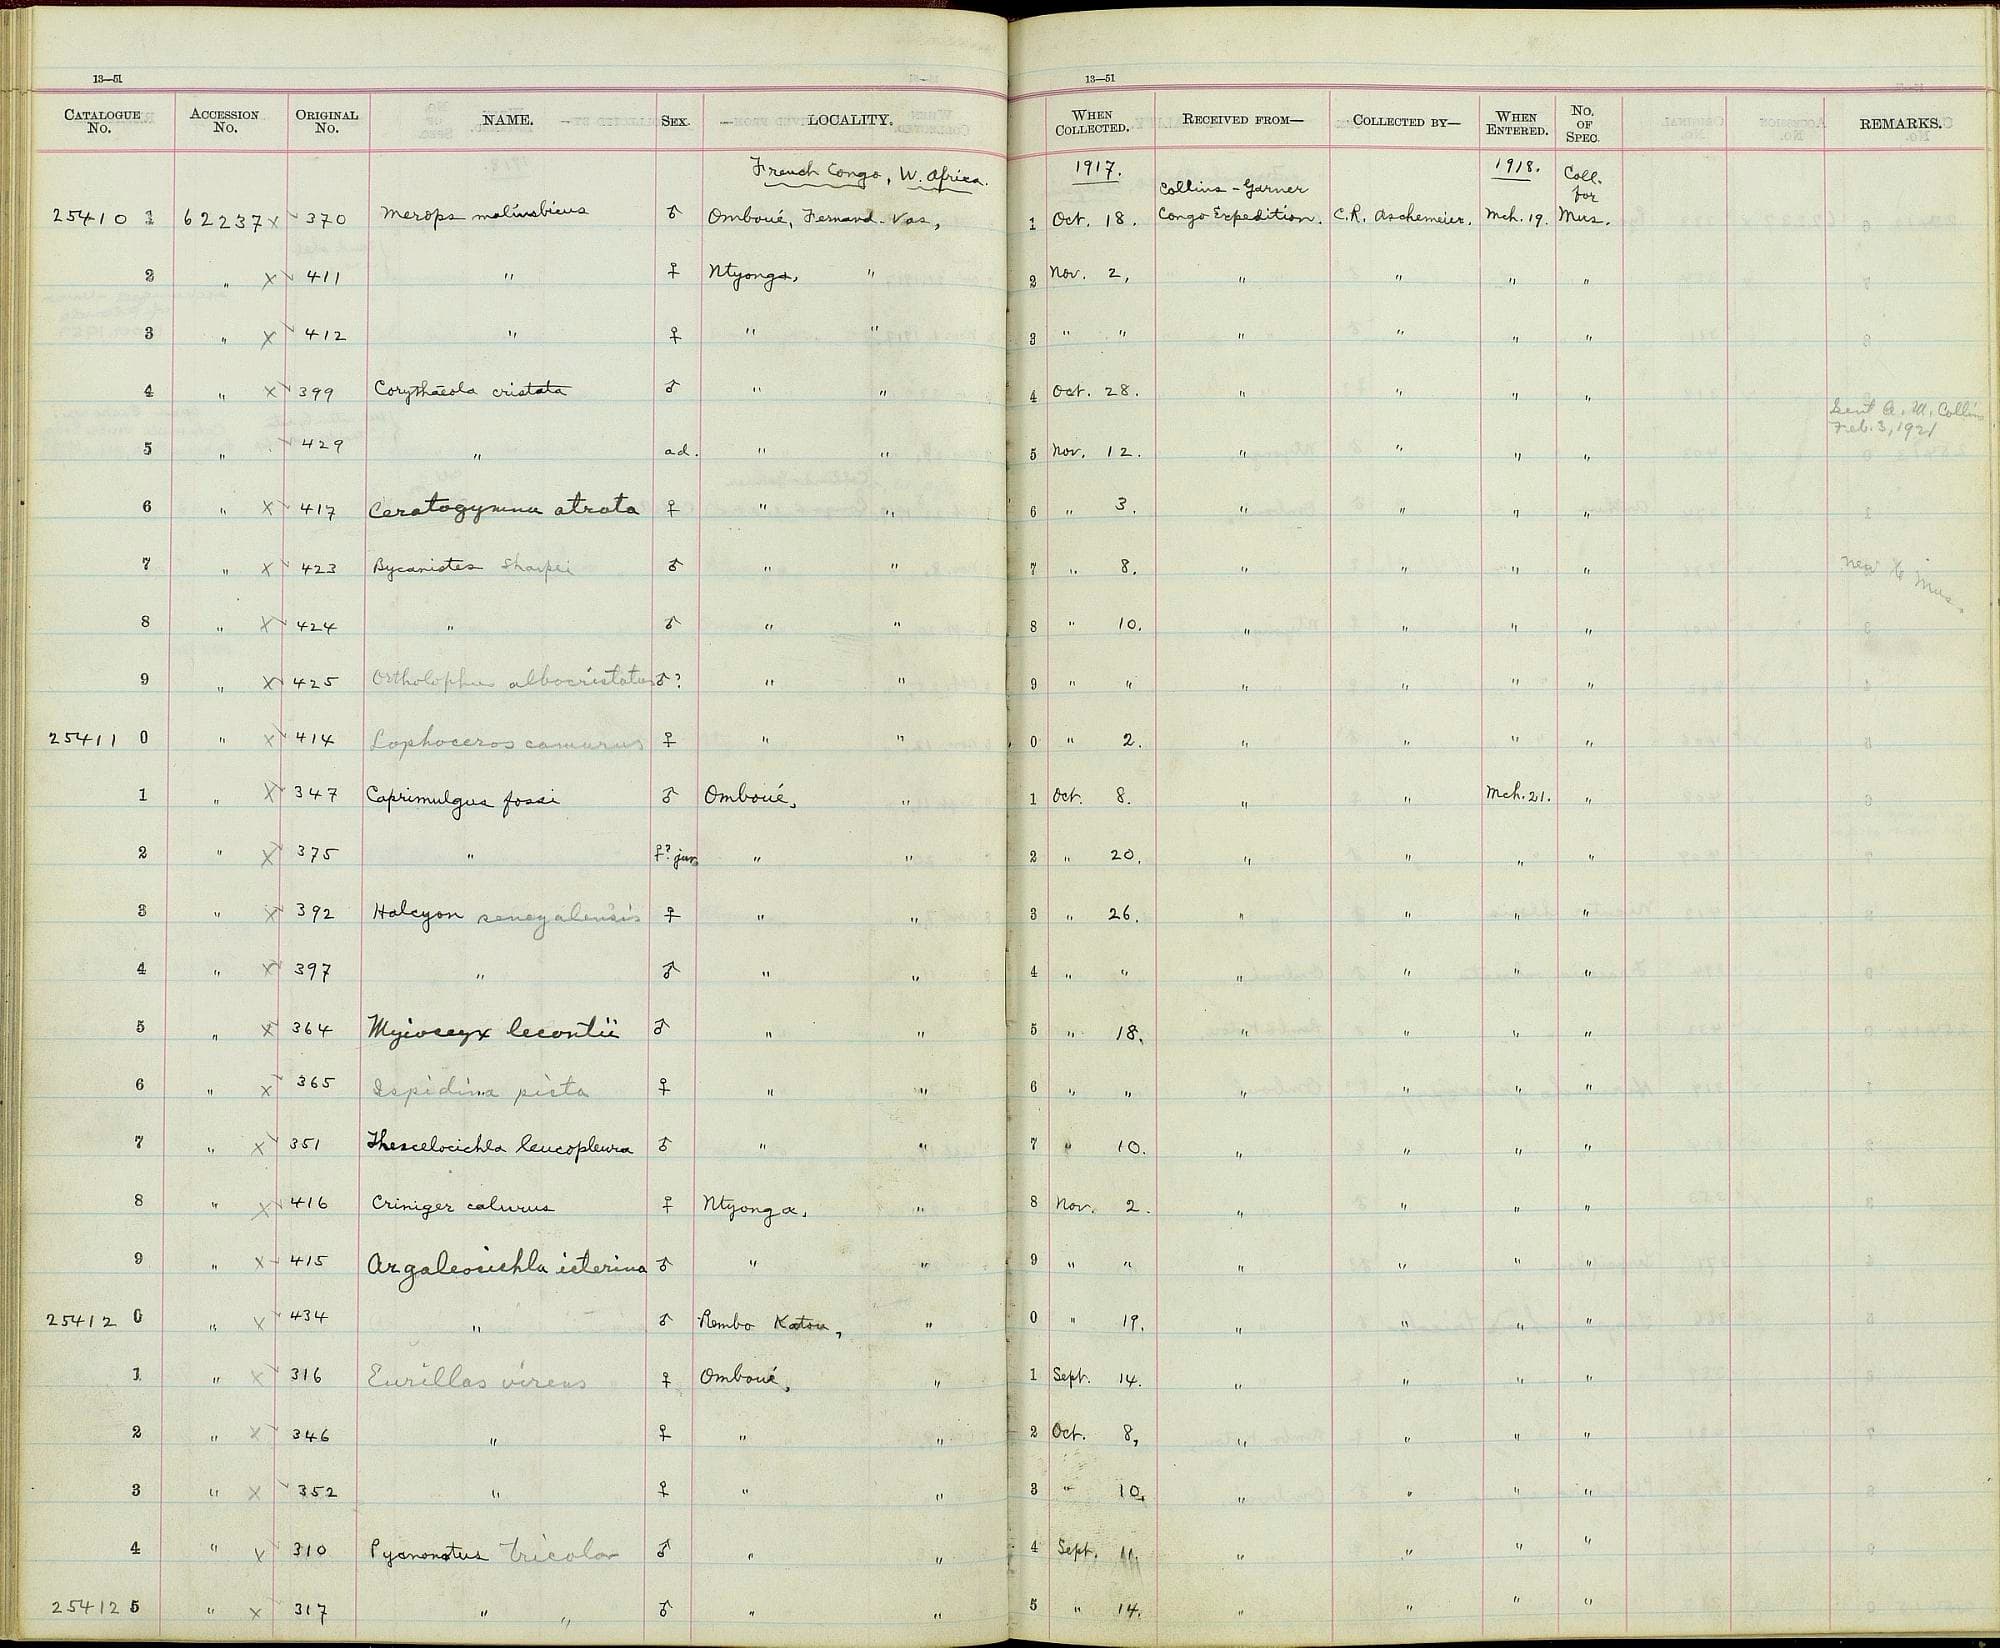 13—51
13—51
CATALOGUE No. ACCESSION No. ORIGINAL No. NAME. SEX. LOCALITY. WHEN COLLECTED. RECEIVED FROM— COLLECTED BY— WHEN ENTERED. NO. OF SPEC. REMARKS.
French Congo, W. Africa. 1917. Collins-Garner 1918. Coll. for
25410 1 62237 x 370 Merops malimbicus ♂ Omboué, Fernand-Vas, 1 Oct. 18. Congo Expedition. C.R. Aschemeier. Mch. 19. Mus.
2 " x 411 " ♀ Ntyonga, " 2 Nov. 2, " " " "
3 " x 412 " ♀ " " 3 " " " " " "
4 " x 399 Corythaeola cristata ♂ " " 4 Oct. 28. " " " "
Sent A. M. Collins
Feb. 3, 1921
5 " 429 " ad. " " 5 Nov. 12. " " " "
6 " x 417 Ceratogymna atrata ♀ " " 6 " 3. " " " "
7 " x 423 Bycanistes sharpei ♂ " " 7 " 8. " " " " New to Mus.
8 " x 424 " ♂ " " 8 " 10. " " " "
9 " x 425 Ortholophus albocristatus ♂? " " 9 " " " " " "
25411 0 " x 414 Lophoceros camurus ♀ " " 0 " 2. " " " "
1 " x 347 Caprimulgus fossi ♂ Omboué, " 1 Oct. 8. " " Mch. 21. "
2 " x 375 " ♀? juv. " " 2 " 20. " " " "
3 " x 392 Halcyon senegalensis ♀ " " 3 " 26. " " " "
4 " x 397 " ♂ " " 4 " " " " " "
5 " x 364 Myioceyx lecontii ♂ " " 5 " 18. " " " "
6 " x 365 Ispidina picta ♀ " " 6 " " " " " "
7 " x 351 Thescelocichla leucopleura ♂ " " 7 " 10. " " " "
8 " x 416 Criniger calurus ♀ Ntyonga, " 8 Nov. 2. " " " "
9 " x 415 Argaleocichla icterina ♂ " " 9 " " " " " "
25412 0 " x 434 " ♂ Rembo Katou, " 0 " 19. " " " "
1 " x 316 Eurillas virens ♀ Omboué, " 1 Sept. 14. " " " "
2 " x 346 " ♀ " " 2 Oct. 8, " " " "
3 " x 352 " ♀ " " 3 " 10. " " " "
4 " x 310 Pycnonotus tricolor ♂ " " 4 Sept. 11. " " " "
25412 5 " x 317 " " ♂ " " 5 " 14. " " " "